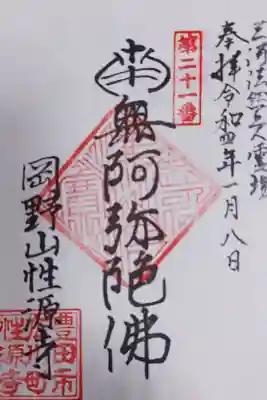 三河法然上人霊場
奉拝令和四年一月八日
第二十一番
南無阿弥陀佛
岡野山性源寺
豊田市
性源寺